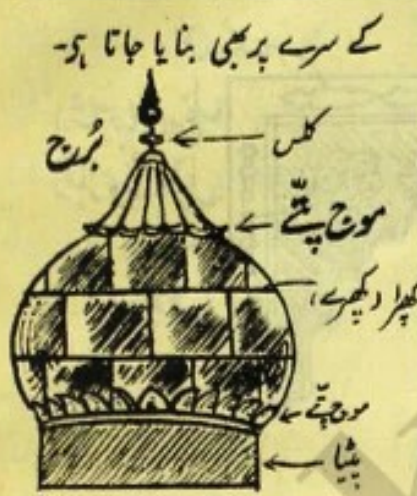 کے سرے پر بھی بنایا جاتا ہو۔
کلس
بُرج
موج پتّے
کھپرا (کھپرے)
موج پتّے
پٹیا